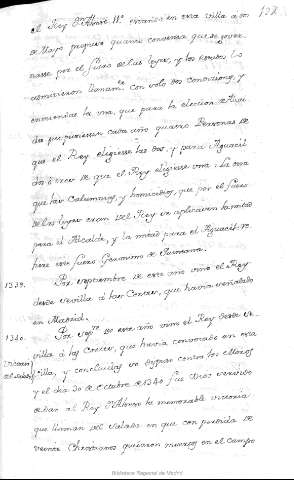 132
el Rey Dn Alonso 11º estando en esta villa a
de Mayo propuso quanto convenia que se gover
nase por el fuero de las leyes, y los
admitieron con solo dos condiciones, y
enmiendas la una, que para la eleccion de Alcal
des propusiesen cada año quatro Personas de
que el Rey eligiesse las dos, y para Alguacil
dos o tres de que el Rey eligiesse una: La otra
que las Calumnias, y homicidios, que por el fuero
de las leyes eran del Rey se aplicasen la mitad
para el Alcalde, y la mitad para el Alguacil. re
fiere este fuero Geronimo de Quintana.
1339. Por septiembre de este año vino el Rey
desde Sevilla á las Cortes, que havia señalado
en Madrid.
1340. Por sepre de este año vino el Rey desde Se
villa á las Cortes, que havia convocado en esta
villa, y concluidas se bolvió contra los Moros
y el dia 30 de octubre de 1340 fue Dios servido
de dar al Rey Dn Alonso la memorable victoria
que llaman del Salado en que con perdida de
veinte Christianos quedaron muertos en el campo
Biblioteca Regional de Madrid